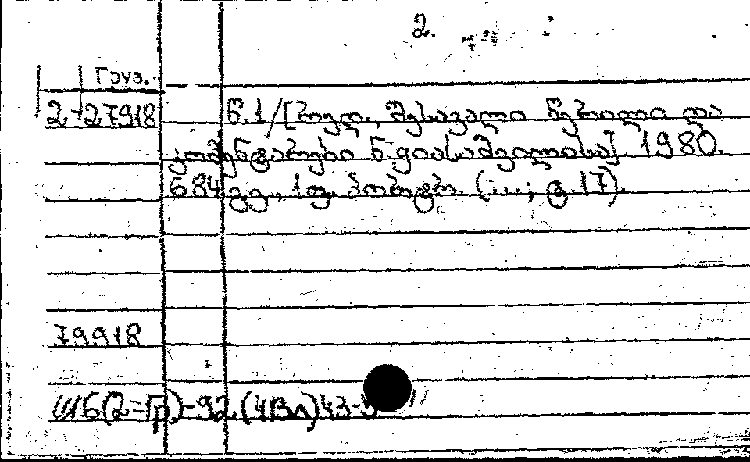 2.
Груз.
2-27918 წ.1/[რედ., შესავალი წერილი და
კომენტარები ნ.დიასამიძისა]. 1980.
684 გვ., 1 ფ. პორტრ. (...; ტ.17).
79918
Ш6(2=Гр)-92.(4Вл)43-